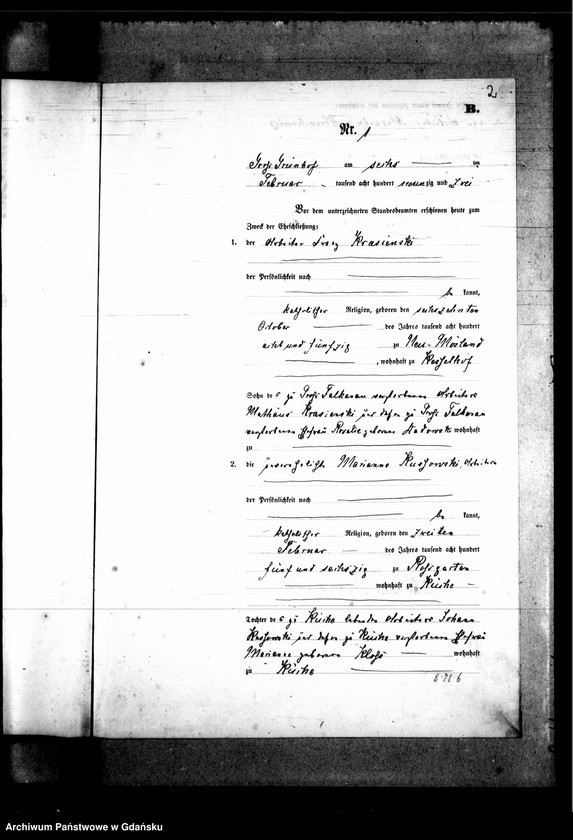 2
B.
Nr. 1
Groß Grünhof am sechs ten
Februar tausend acht hundert neunzig und zwei
Vor dem unterzeichneten Standesbeamten erschienen heute zum
Zweck der Eheschließung:
1. der Arbeiter Franz Krasienski
der Persönlichkeit nach
be kannt,
katholischer Religion, geboren den sechszehnten
October des Jahres tausend acht hundert
acht und fünfzig zu Neu-Mösland
, wohnhaft zu Kesselhof
Sohn des zu Groß Falkenau verstorbenen Arbeiters
Mathäus Krasienski und dessen zu Groß Falkenau
verstorbenen Ehefrau Rosalie geborene Sadowski wohnhaft
zu
2. die unverehelichte Marianne Kuschowski, Arbeiterin
der Persönlichkeit nach
be kannt,
katholischer Religion, geboren den zweiten
Februar des Jahres tausend acht hundert
fünf und sechszig zu Roßgarten
wohnhaft zu Kirche
Tochter des zu lebenden Arbeiters Johann
Kuschowski und dessen zu verstorbenen Ehefrau
Marianne geborene wohnhaft
zu
Archiwum Państwowe w Gdańsku